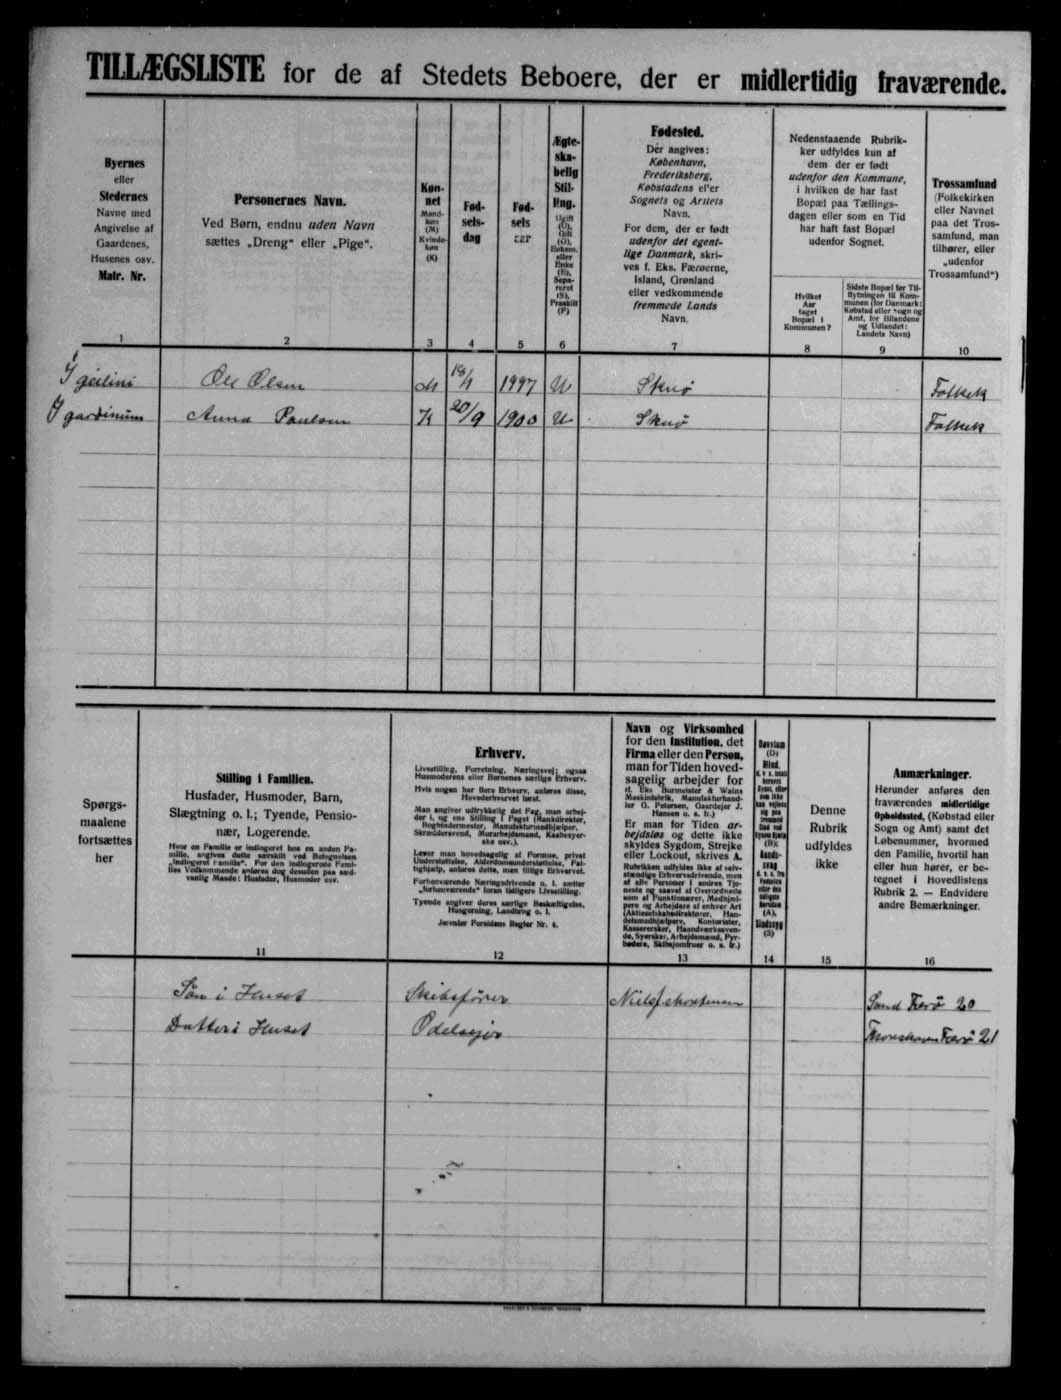 TILLÆGSLISTE for de af Stedets Beboere, der er midlertidig fraværende.
Byernes
eller
Stedernes
Navne med
Angivelse af
Gaardenes,
Husenes osv.
Matr. Nr.
Personernes Navn.
Ved Børn, endnu uden Navn
sættes „Dreng“ eller „Pige“.
Køn-
net
Mand-
køn
(M)
Kvinde-
køn
(K)
Fød-
sels-
dag
Fød-
sels
aar
Ægte-
ska-
belig
Stil-
ling.
Ugift
(U),
Gift
(G),
Enkem.
eller
Enke
(E),
Sepa-
reret
(S),
Fraskilt
(F)
Fødested.
Der angives:
København,
Frederiksberg,
Købstadens el'er
Sognets og Amtets
Navn.
For dem, der er født
udenfor det egent-
lige Danmark, skri-
ves f. Eks. Færøerne,
Island, Grønland
eller vedkommende
fremmede Lands
Navn.
Nedenstaaende Rubrik-
ker udfyldes kun af
dem der er født
udenfor den Kommune,
i hvilken de har fast
Bopæl paa Tællings-
dagen eller som en Tid
har haft fast Bopæl
udenfor Sognet.
Hvilket
Aar
taget
Bopæl i
Kommunen?
Sidste Bopæl før Til-
flytningen til Kom-
munen (for Danmark:
Købstad eller Sogn og
Amt, for Bilandene
og Udlandet:
Landets Navn)
Trossamfund
(Folkekirken
eller Navnet
paa det Tros-
samfund, man
tilhører, eller
„udenfor
Trossamfund“)
1 2 3 4 5 6 7 8 9 10
Ole Olsen M 18/4 1997 U Skuø Folkek
I gardinum Anna Poulsen K 20/9 1900 U Skuø Folkek
Spørgs-
maalene
fortsættes
her
Stilling i Familien.
Husfader, Husmoder, Barn,
Slægtning o. l.; Tyende, Pensio-
nær, Logerende.
Hvor en Familie er indlogeret hos en anden Fa-
milie, angives dette særskilt ved Betegnelsen
„indlogeret Familie“. For den indlogerede Fami-
lies Vedkommende anføres dog desuden paa sæd-
vanlig Maade: Husfader, Husmoder osv.
Erhverv.
Livsstilling, Forretning, Næringsvej; ogsaa
Husmoderens eller Børnenes særlige Erhverv.
Hvis nogen har flere Erhverv, anføres disse,
Hovederhvervet først.
Man angiver udtrykkelig det Fag, man arbej-
der i, og ens Stilling i Faget (Bankdirektør,
Bogbindermester, Manufakturmedhjælper,
Skræddersvend, Murarbejdsmand, Kaabesyer-
ske osv.).
Lever man hovedsagelig af Formue, privat
Understøttelse, Alderdomsunderstøttelse, Fat-
tighjælp, anføres dette, men tillige Erhvervet.
Forhenværende Næringsdrivende o. l. sætter
„forhenværende“ foran tidligere Livsstilling.
Tyende angiver deres særlige Beskæftigelse,
Husgerning, Landbrug o. l.
Jævnfør Forsidens Regler Nr. 4.
Navn og Virksomhed
for den Institution, det
Firma eller den Person,
man for Tiden hoved-
sagelig arbejder for
(f. Eks Burmeister & Wains
Maskinfabrik, Manufakturhand-
ler G. Petersen, Gaardejer J.
Hansen o. s. fr.)
Er man for Tiden ar-
bejdsløs og dette ikke
skyldes Sygdom, Strejke
eller Lockout, skrives A.
Rubrikken udfyldes ikke af selv-
stændige Erhvervsdrivende, men
af alle Personer i andres Tje-
neste og saavel af Overordnede
som af Funktionærer, Medhjæl-
pere og Arbejdere af enhver Art
(Aktieselskabsdirektører, Han-
delsmedhjælpere, Kontorister,
Kasserersker, Haandværkssven-
de, Syersker, Arbejdsmænd, Fyr-
bødere, Skibsjomfruer o. s. fr.)
Døvstum
(D)
Blind,
(B);
Aands-
svag
(A),
Sindssyg
(S)
Denne
Rubrik
udfyldes
ikke
Anmærkninger.
Herunder anføres den
fraværendes midlertidige
Opholdssted, (Købstad eller
Sogn og Amt) samt det
Løbenummer, hvormed
den Familie, hvortil han
eller hun hører, er be-
tegnet i Hovedlistens
Rubrik 2. — Endvidere
andre Bemærkninger.
11 12 13 14 15 16
Søn i Huset Skibsfører Sand Færø 20
Datter i Huset Thorshavn Færø 21